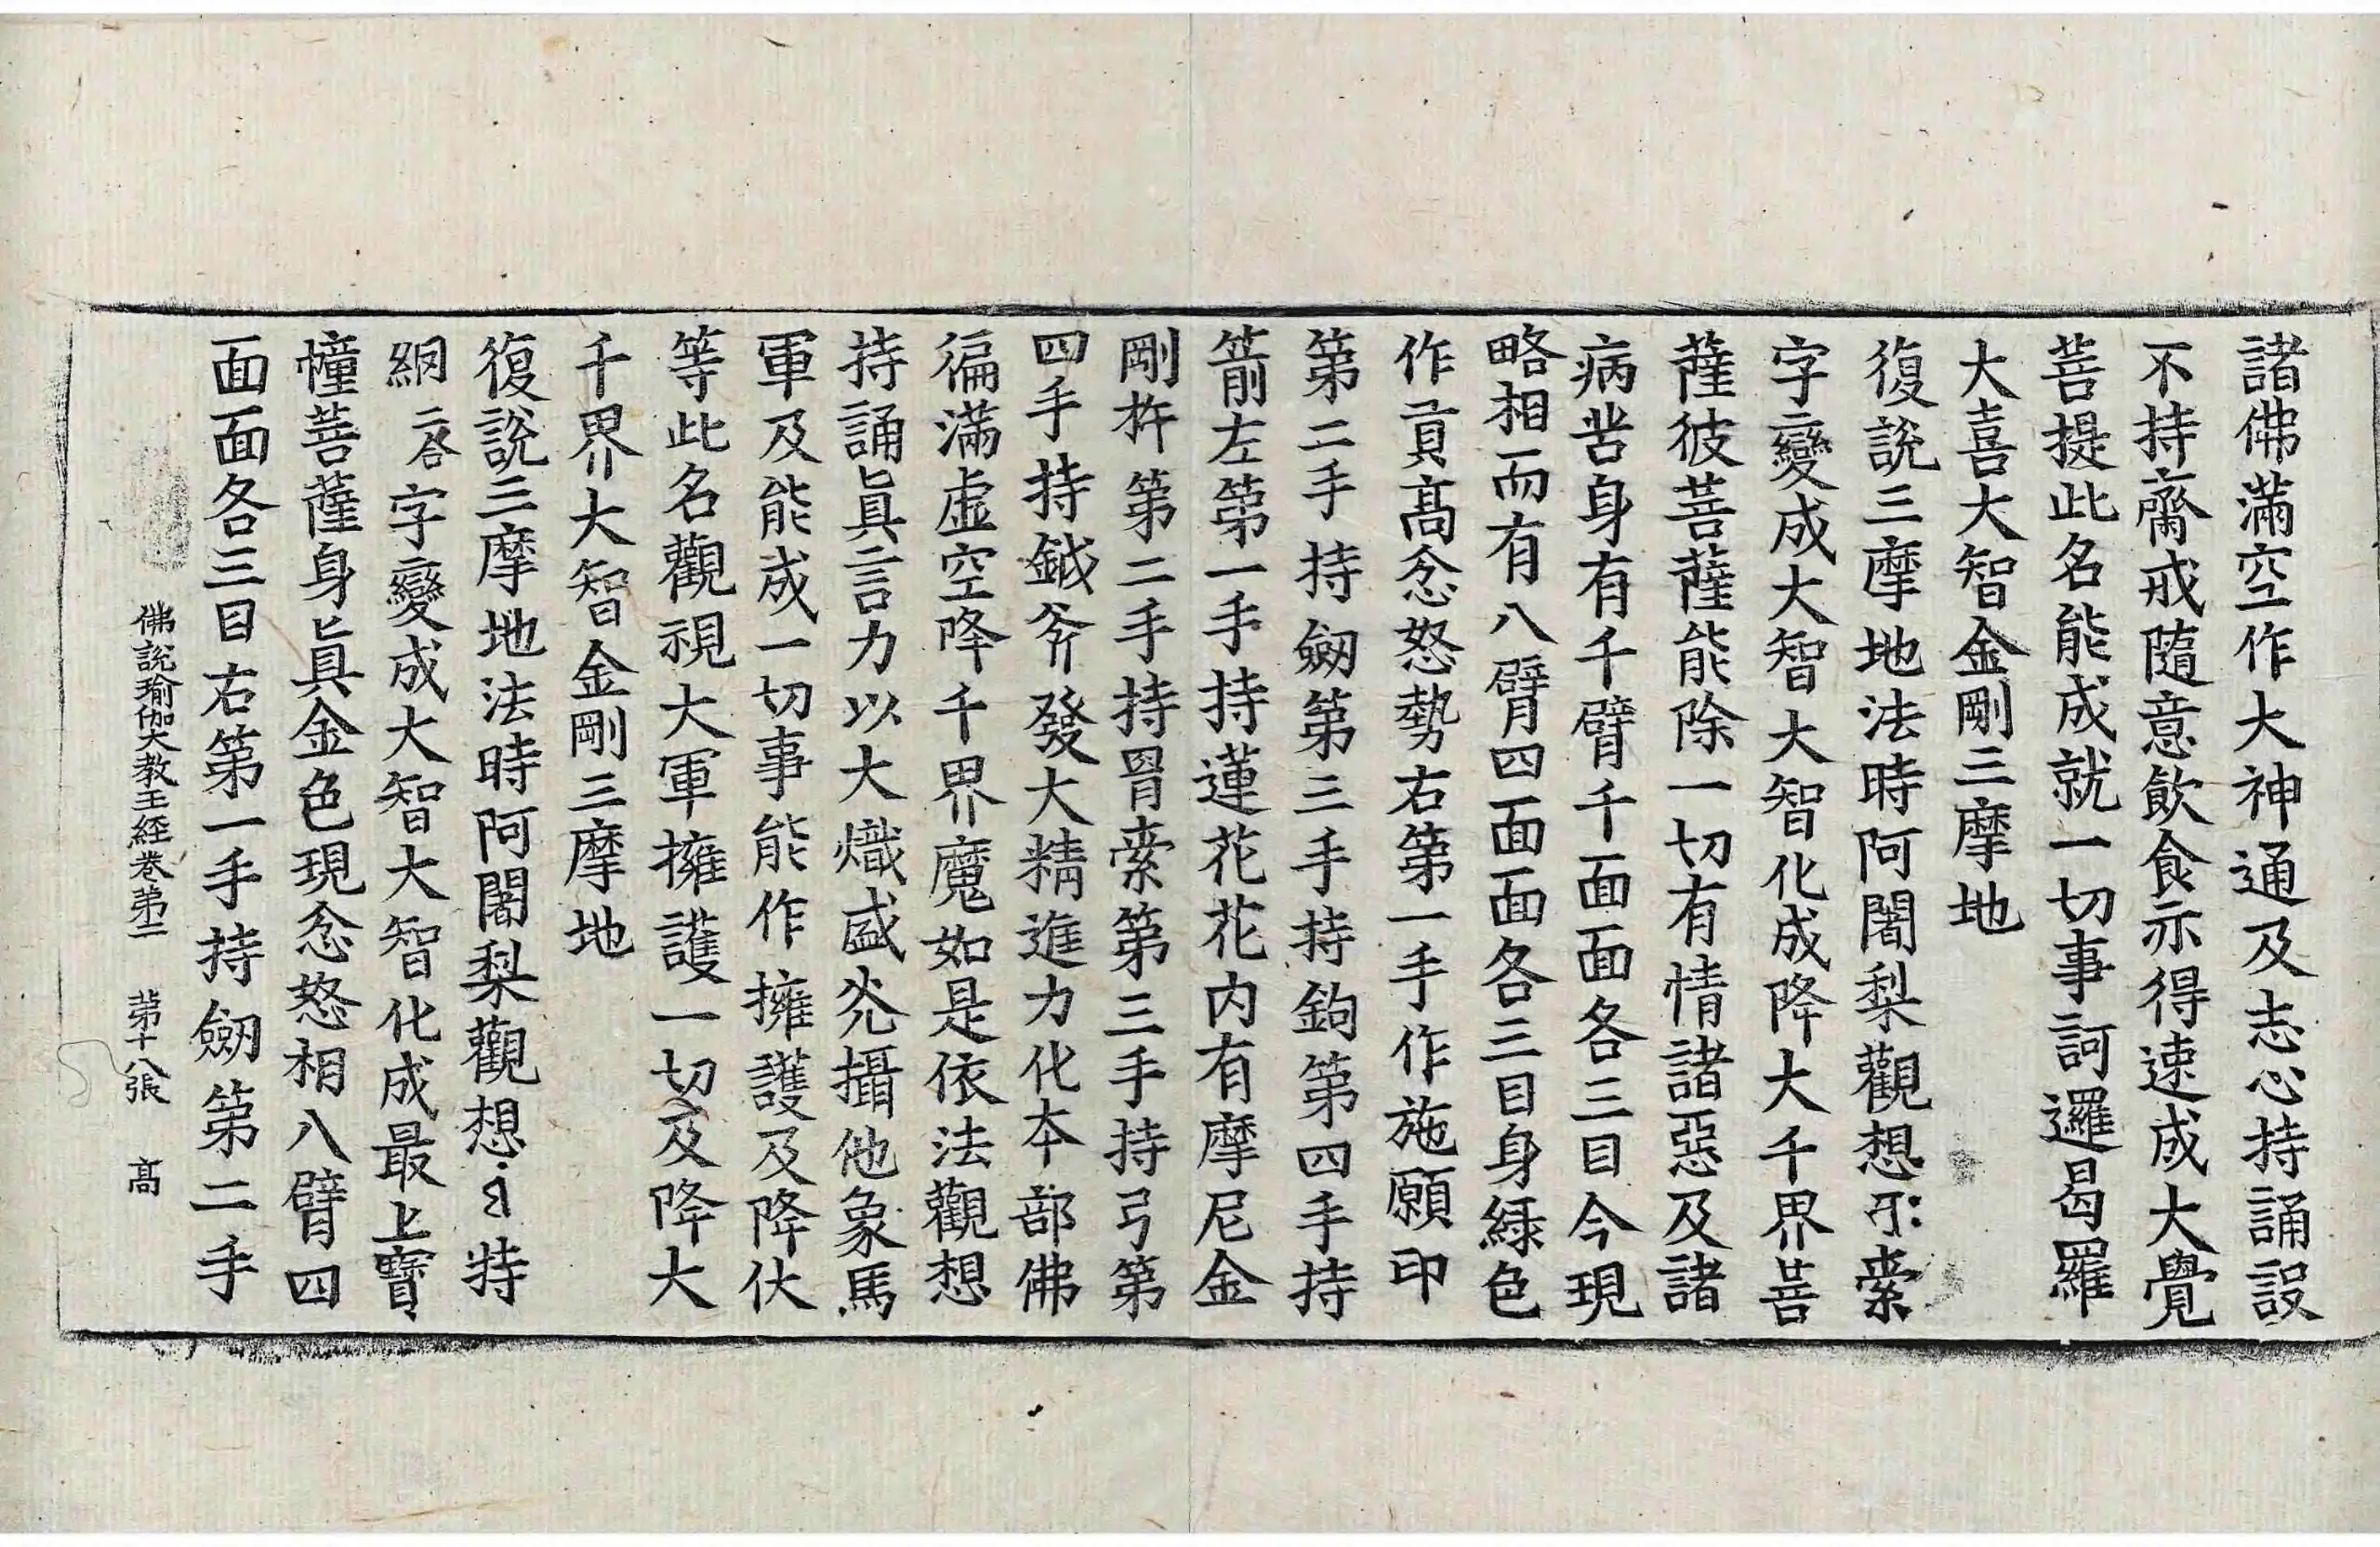 諸佛滿空作大神通及志心持誦設
不持齋戒隨意飲食示得速成大覺
菩提此名能成就一切事訶邏曷羅
大喜大智金剛三摩地
復說三摩地法時阿闍梨觀想 索
字變成大智大智化成降大千界菩
薩彼菩薩能除一切有情諸惡及諸
病苦身有千臂千面面各三目今現
略相而有八臂四面面各三目身綠色
作貢高忿怒勢右第一手作施願印
第二手持劒第三手持鉤第四手持
箭左第一手持蓮花花內有摩尼金
剛杵第二手持羂索第三手持弓第
四手持鉞斧發大精進力化本部佛
徧滿虛空降千界魔如是依法觀想
持誦眞言力以大熾盛光攝他象馬
軍及能成一切事能作擁護及降伏
等此名觀視大軍擁護一切及降大
千界大智金剛三摩地
復說三摩地法時阿闍梨觀想 特
網二合字變成大智大智化成最上寶
幢菩薩身眞金色現忿怒相八臂四
面面各三目右第一手持劒第二手
佛說瑜伽大教王經卷第二 第十八張 高